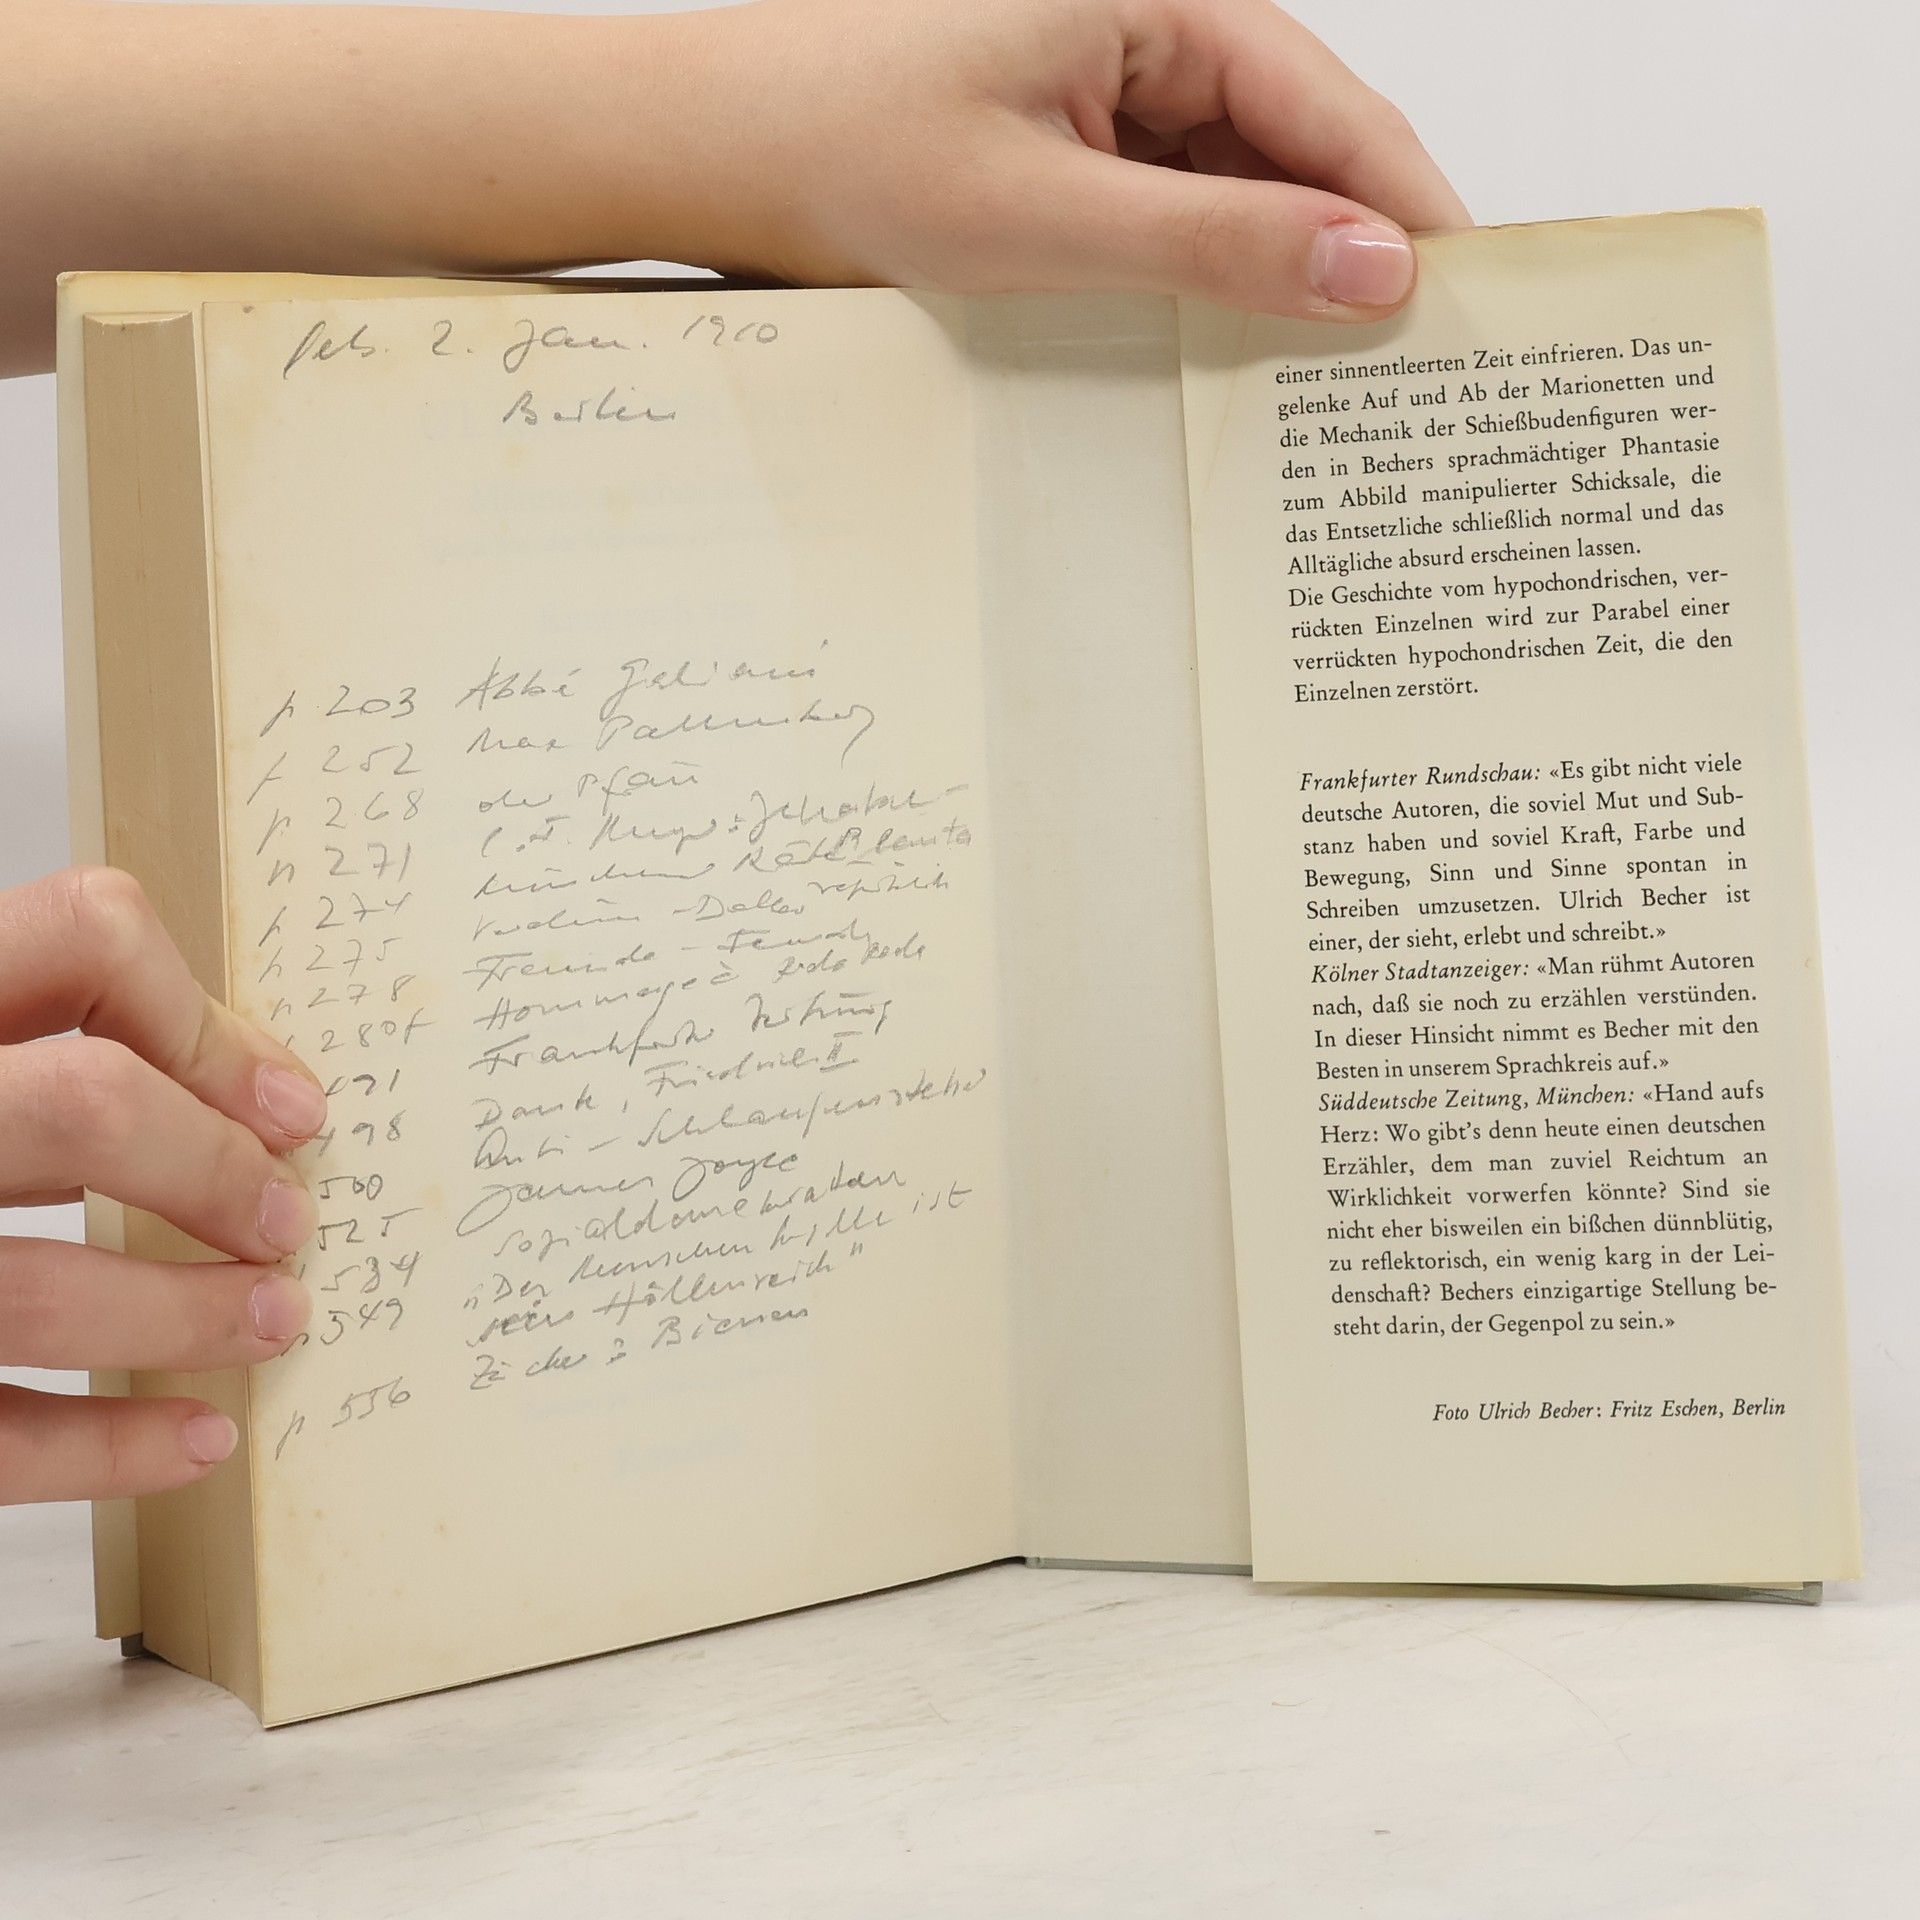 geb. 2. Jan. 1910
Berlin
p 203 Abbé Galiani
p 252 Max Pallenberg
p 268 der Pfau
p 271 C.F. Meyer:
p 274 Münchner Räterepublik
p 275
p 278 Freunde -
280f Hommage à Roda Roda
491 Frankfurter Zeitung
498 Dank, Friedrich II
500 Anti-
525 James Joyce
534 Sozialdemokraten
p 549 „Der Menschen Hölle ist
sein Höllenreich"
p 556 Zücher: Bienen
einer sinnentleerten Zeit einfrieren. Das un-
gelenke Auf und Ab der Marionetten und
die Mechanik der Schießbudenfiguren wer-
den in Bechers sprachmächtiger Phantasie
zum Abbild manipulierter Schicksale, die
das Entsetzliche schließlich normal und das
Alltägliche absurd erscheinen lassen.
Die Geschichte vom hypochondrischen, ver-
rückten Einzelnen wird zur Parabel einer
verrückten hypochondrischen Zeit, die den
Einzelnen zerstört.
Frankfurter Rundschau: «Es gibt nicht viele
deutsche Autoren, die soviel Mut und Sub-
stanz haben und soviel Kraft, Farbe und
Bewegung, Sinn und Sinne spontan in
Schreiben umzusetzen. Ulrich Becher ist
einer, der sieht, erlebt und schreibt.»
Kölner Stadtanzeiger: «Man rühmt Autoren
nach, daß sie noch zu erzählen verstünden.
In dieser Hinsicht nimmt es Becher mit den
Besten in unserem Sprachkreis auf.»
Süddeutsche Zeitung, München: «Hand aufs
Herz: Wo gibt's denn heute einen deutschen
Erzähler, dem man zuviel Reichtum an
Wirklichkeit vorwerfen könnte? Sind sie
nicht eher bisweilen ein bißchen dünnblütig,
zu reflektorisch, ein wenig karg in der Lei-
denschaft? Bechers einzigartige Stellung be-
steht darin, der Gegenpol zu sein.»
Foto Ulrich Becher: Fritz Eschen, Berlin